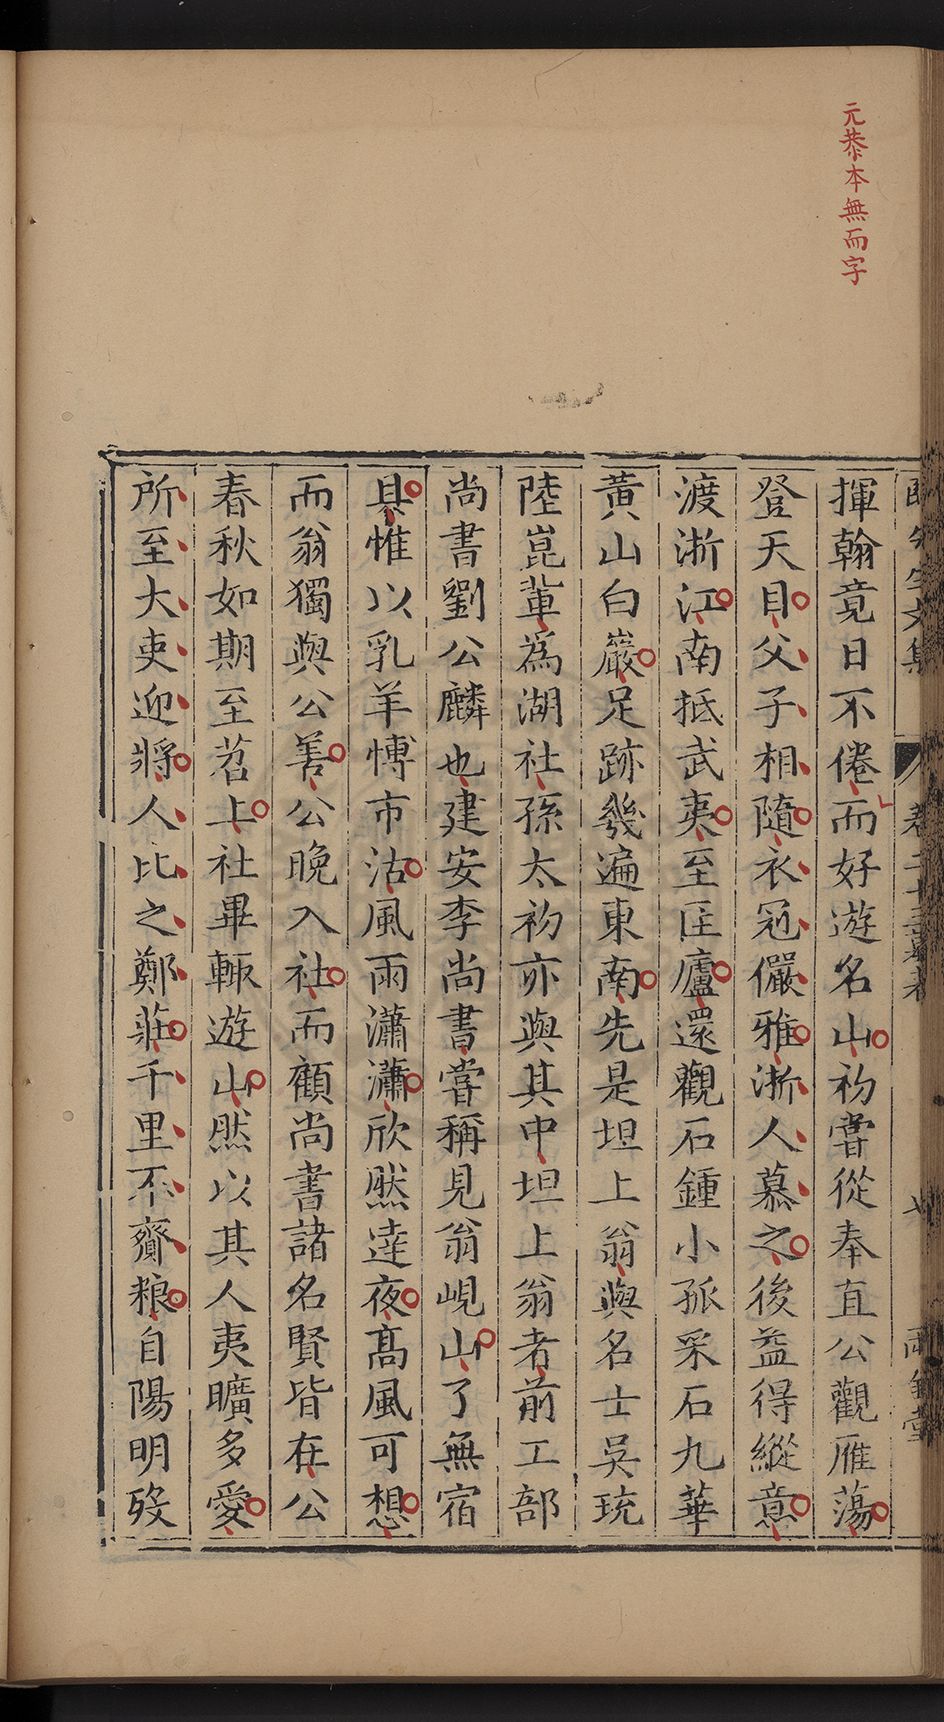 元恭本無而字
揮翰竟日不倦而好遊名山初嘗從奉直公觀雁蕩
登天目父子相隨衣冠儼雅浙人慕之後益得縱意
渡浙江南抵武夷至匡廬還觀石鍾小孤采石九華
黃山白巖足跡幾遍東南先是坦上翁與名士吳珫
陸崑輩為湖社孫太初亦與其中坦上翁者前工部
尚書劉公麟也建安李尚書嘗稱見翁峴山了無宿
具惟以乳羊博市沽風雨瀟瀟欣然達夜高風可想
而翁獨與公善公晚入社而顧尚書諸名賢皆在公
春秋如期至苕上社畢輒遊山然以其人夷曠多愛
所至大吏迎將人比之鄭莊千里不齎粮自陽明歿